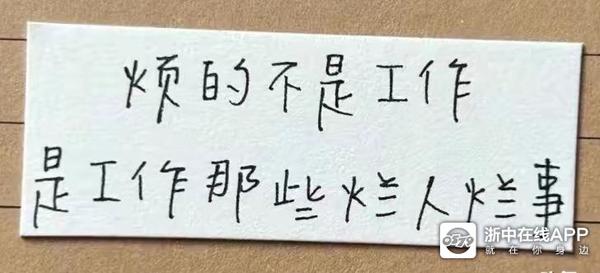 烦的不是工作
是工作那些烂人烂事
浙中在线APP
就在你身边